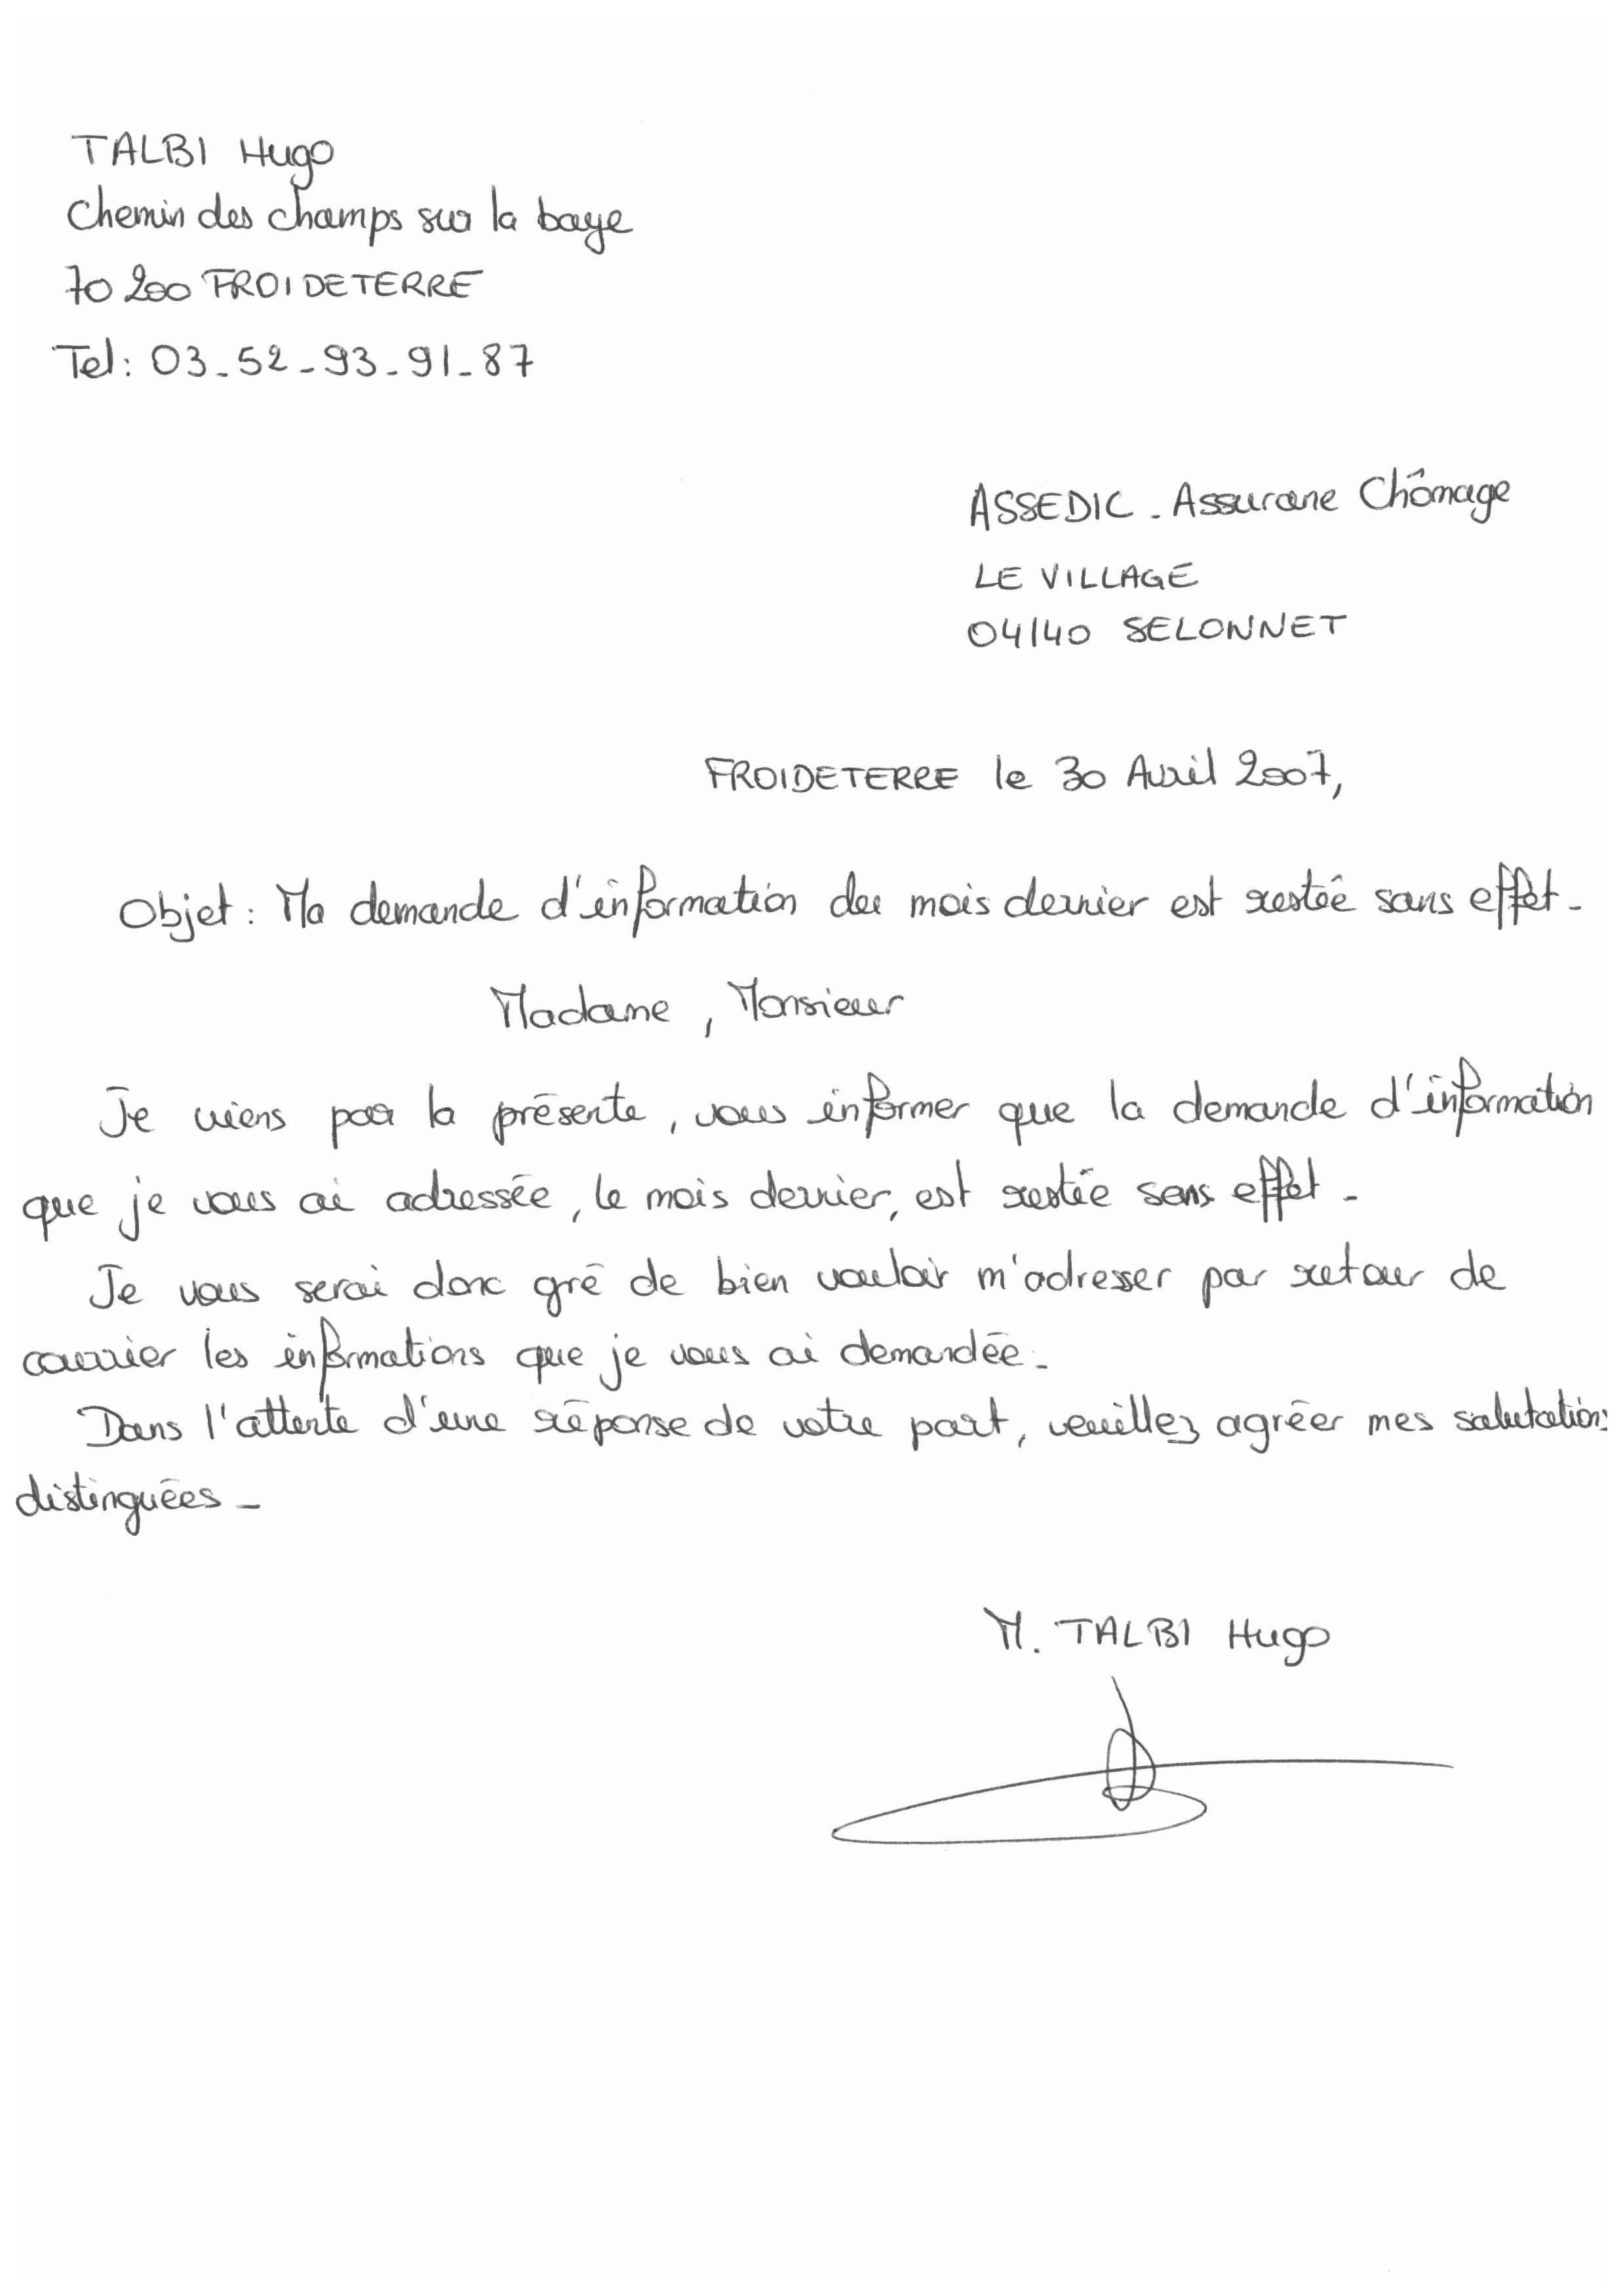 TALBI Hugo
Chemin des champs sur la baye
70200 FROIDETERRE
Tel: 03-52-93-91-87
ASSEDIC - Assurance Chômage
LE VILLAGE
04140 SELONNET
FROIDETERRE le 30 Avril 2007,
Objet: Ma demande d'information du mois dernier est restée sans effet.
Madame, Monsieur
Je viens par la présente, vous informer que la demande d'information
que je vous ai adressée, le mois dernier, est restée sans effet.
Je vous serai donc gré de bien vouloir m'adresser par retour de
courrier les informations que je vous ai demandée.
Dans l'attente d'une réponse de votre part, veuillez agréer mes salutations
distinguées.
M. TALBI Hugo